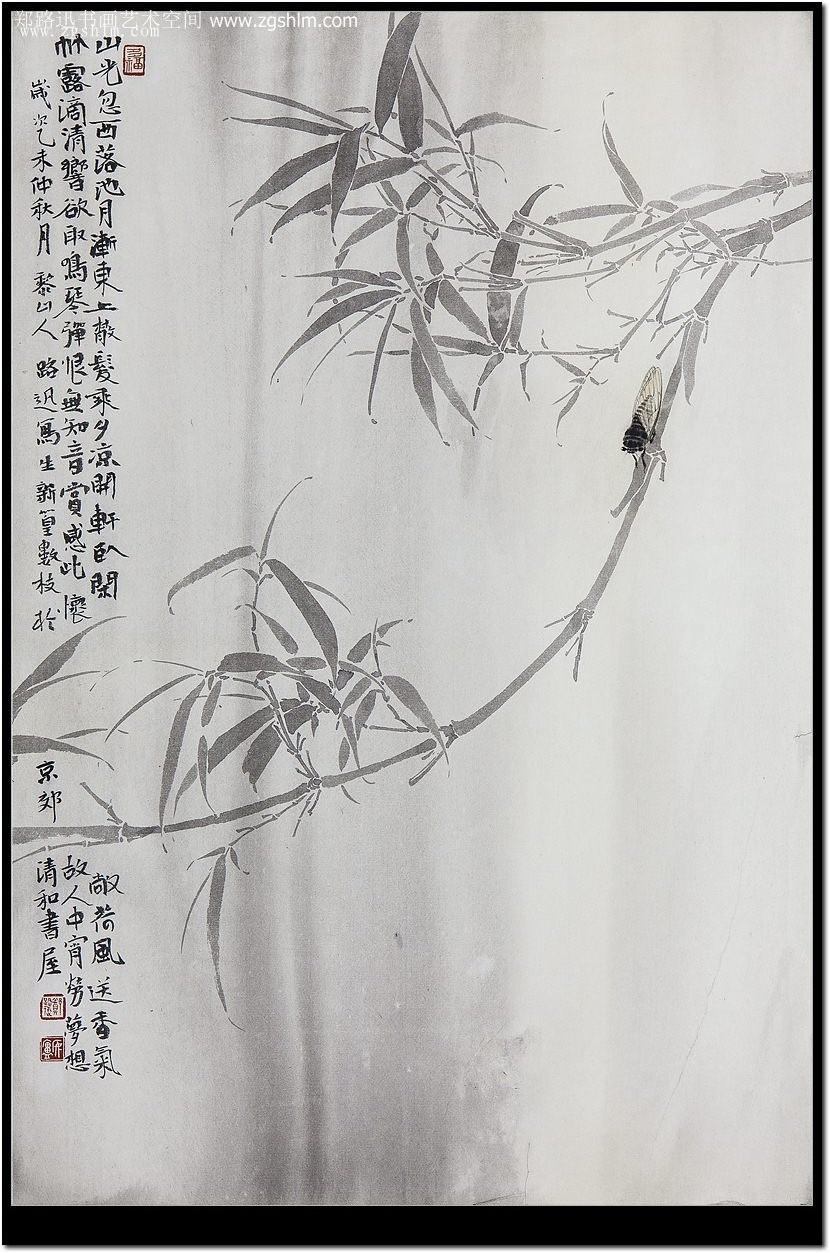 郑路迅书画艺术空间 www.zgshlm.com
www.zgshlm.com
山光忽西落池月漸東上散髮乘夕凉開軒臥閑敞荷風送香氣
竹露滴清響欲取鳴琴彈恨無知音賞感此懷故人中宵勞夢想
歲次乙未仲秋月黎山人路迅寫生新篁數枝於京郊清和書屋